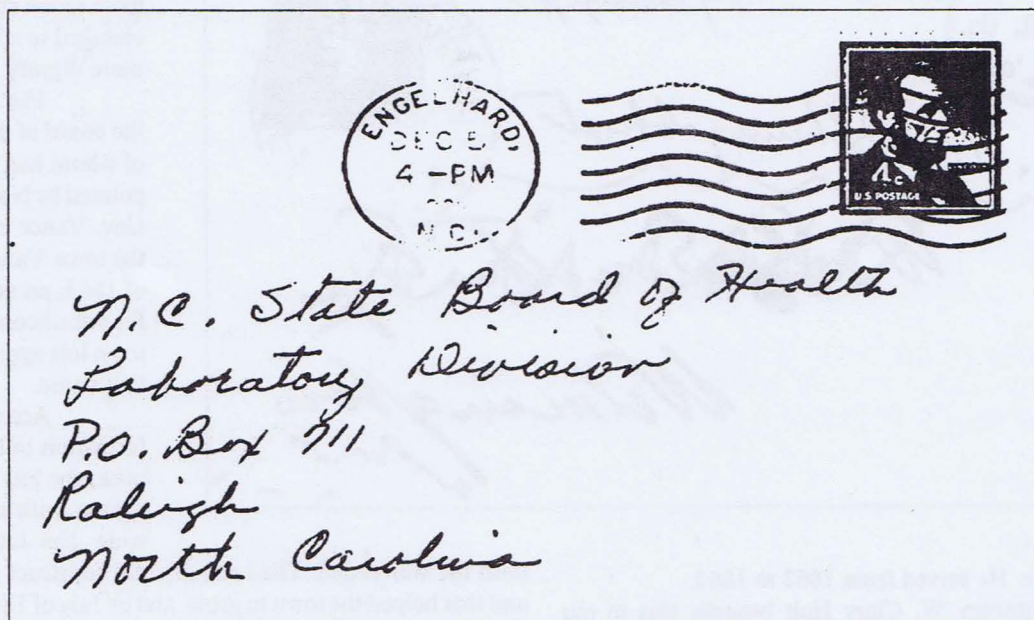 ENGELHARD,
DEC 5
4 -PM
N.C.
4¢
U.S POSTAGE
N.C. State Board of Health
Laboratory Division
P.O. Box 711
Raleigh
North Carolina